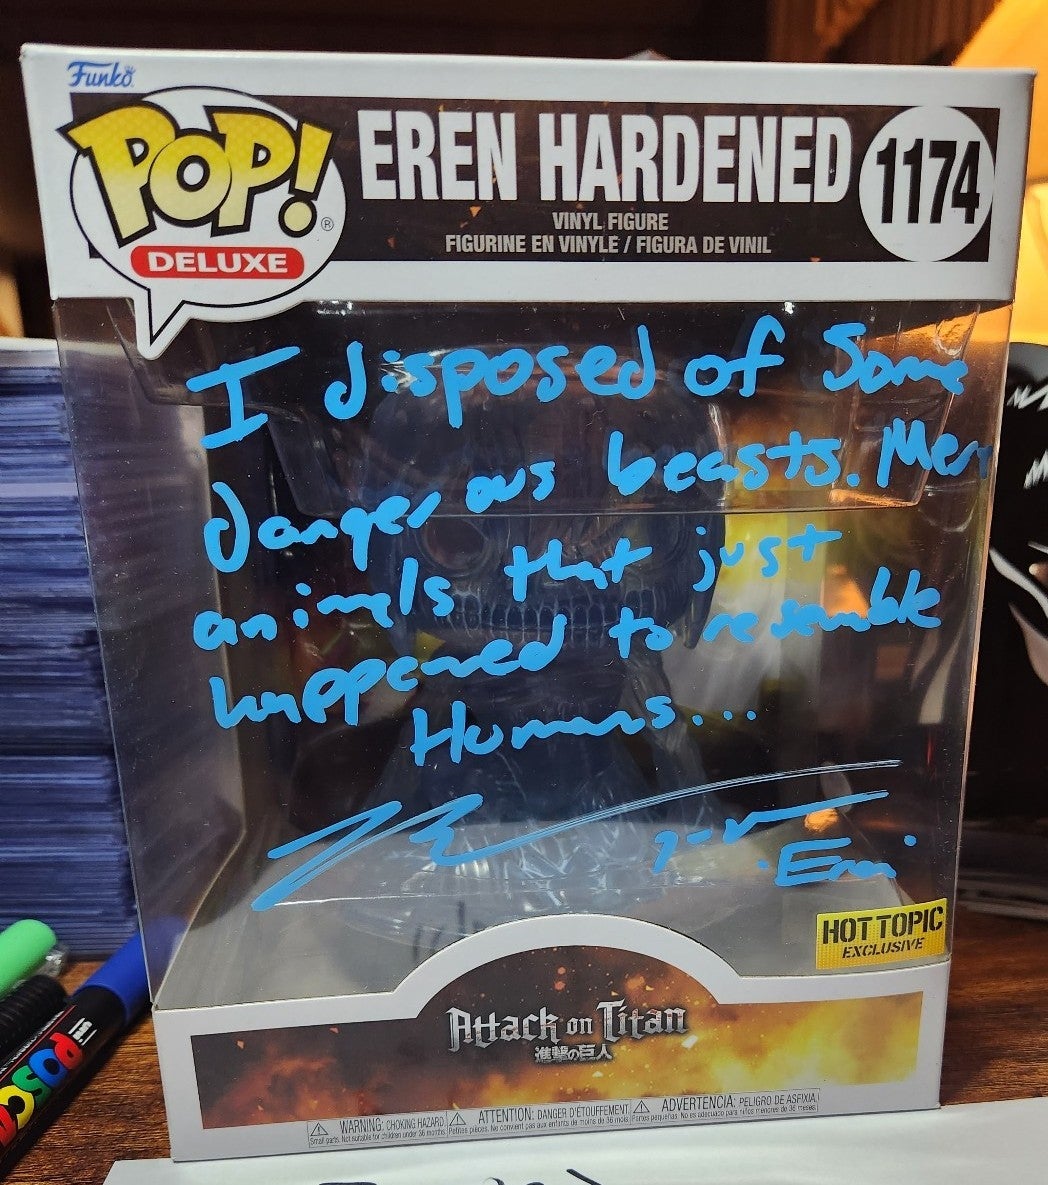 Funko
POP!
DELUXE
EREN HARDENED
1174
VINYL FIGURE
FIGURINE EN VINYLE / FIGURA DE VINIL
I disposed of Some
dangerous beasts. Mere
animals that just
happened to resemble
Humans...
-Eren
HOT TOPIC
EXCLUSIVE
Attack on Titan
進撃の巨人
WARNING: CHOKING HAZARD.
Small parts. Not suitable for children under 36 months.
ATTENTION: DANGER D'ÉTOUFFEMENT.
Petites pièces. Ne convient pas aux enfants de moins de 36 mois.
ADVERTENCIA: PELIGRO DE ASFIXIA.
Partes pequeñas. No es adecuado para niños menores de 36 meses.
POSCA
uni